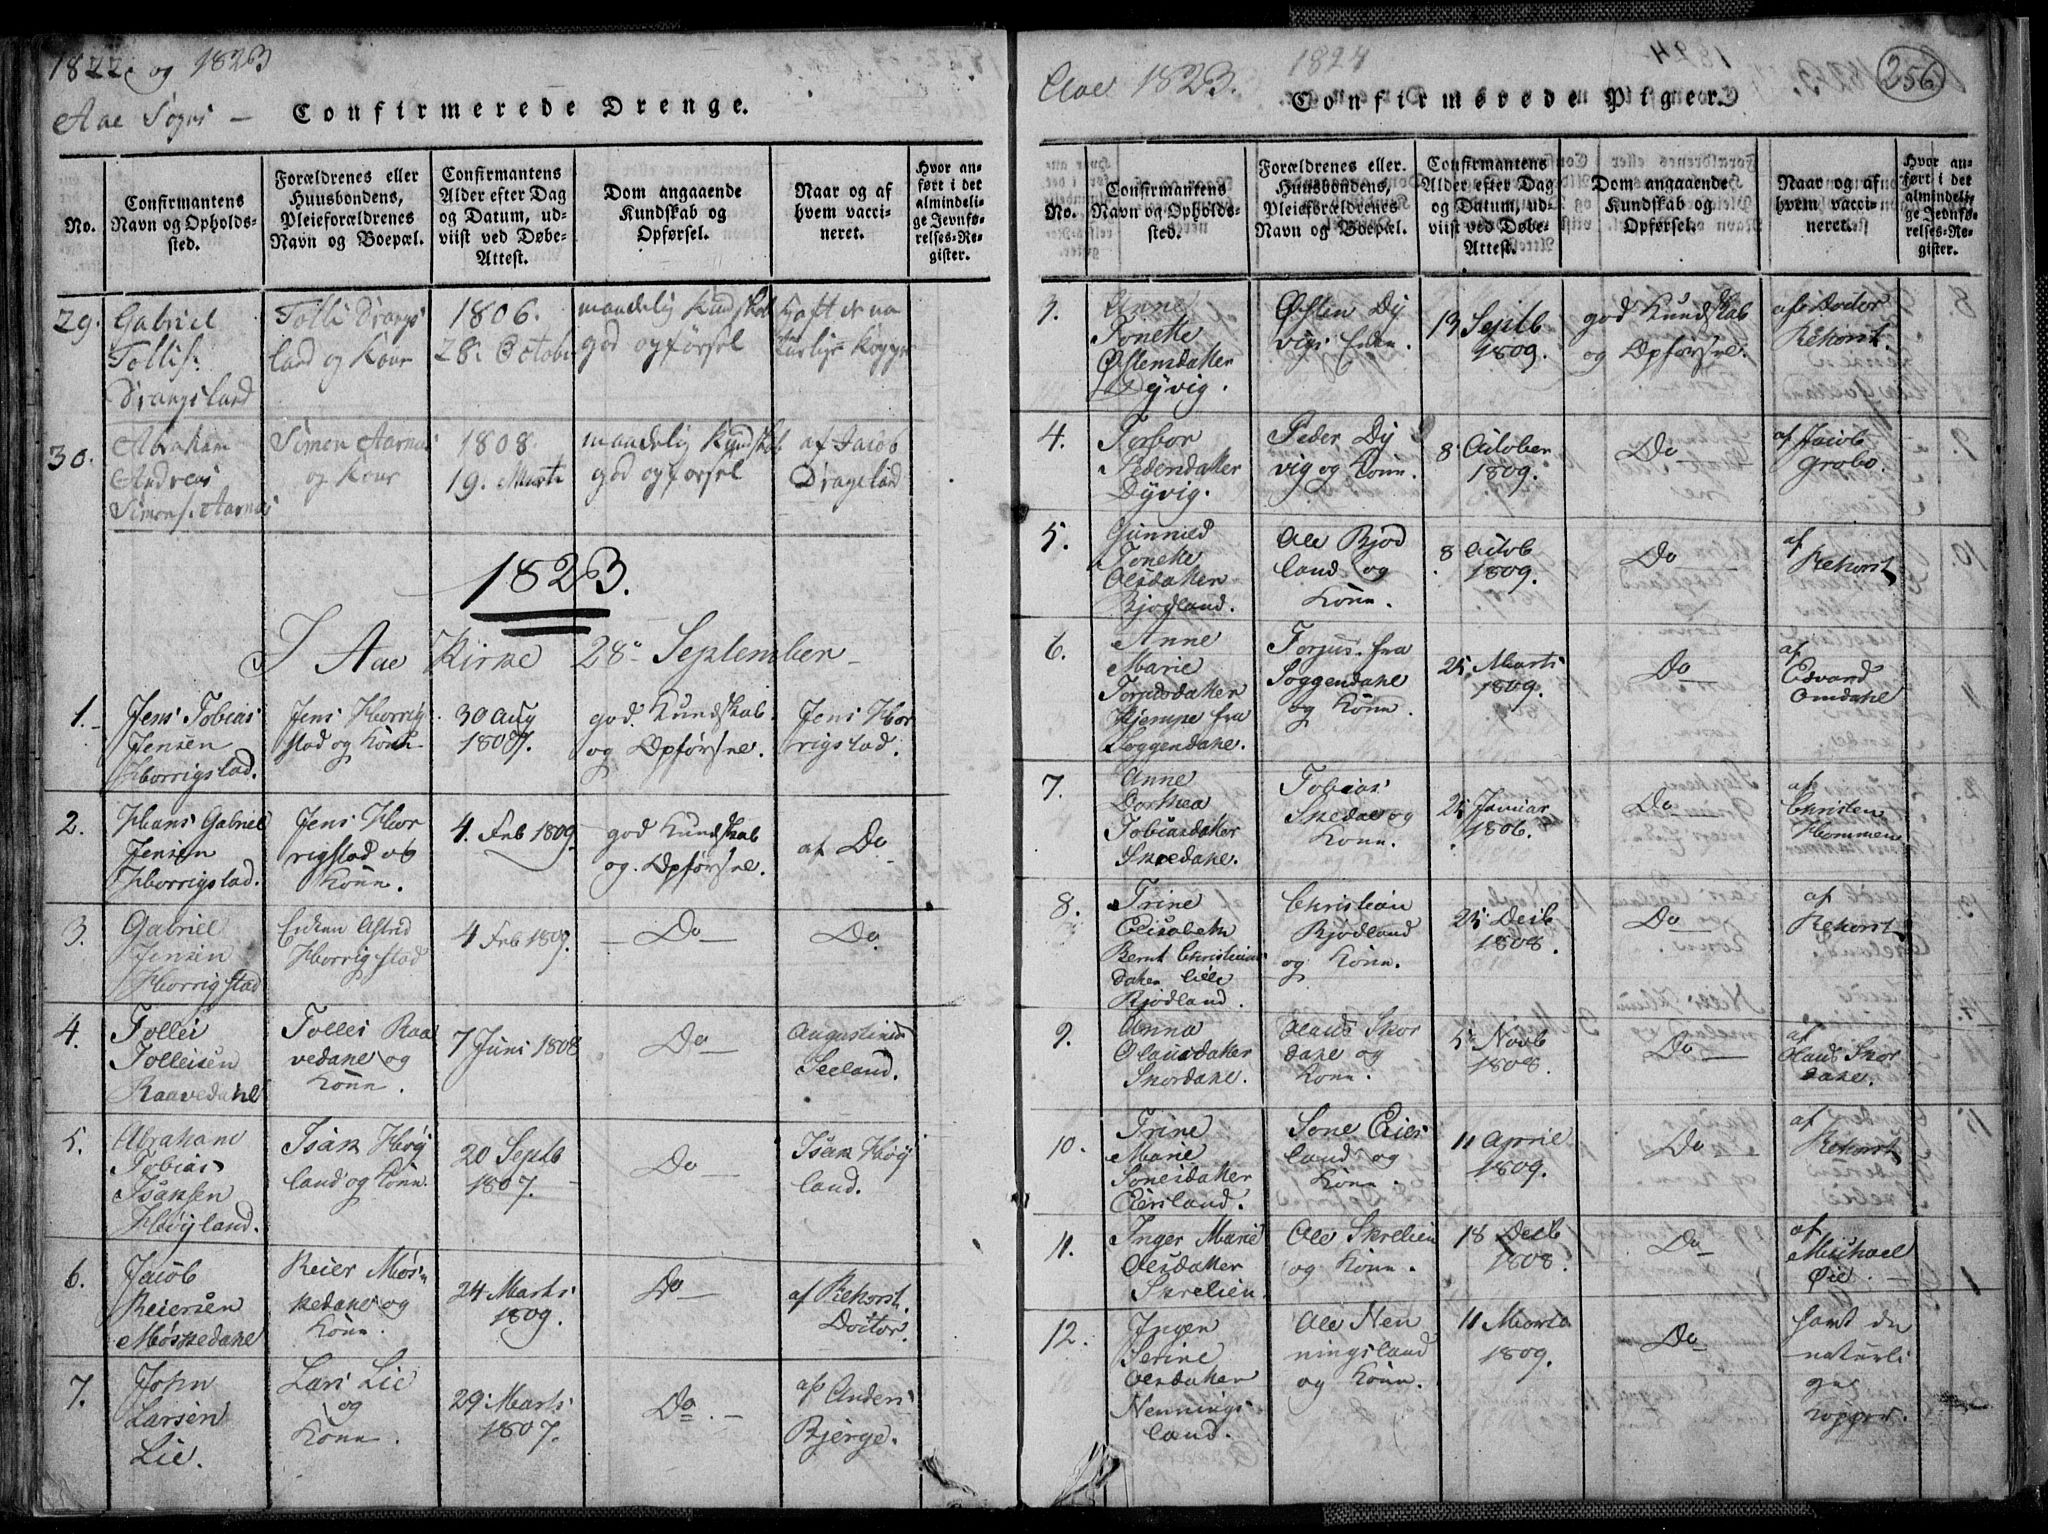 1822 og 1823
Aae Sogn —
Confirmerede Drenge.
No.
Confirmantens
Navn og Opholds-
sted.
Forældrenes eller
Huusbondens,
Pleieforældrenes
Navn og Boepæl.
Confirmantens
Alder efter Dag
og Datum, ud-
viist ved Døbe-
Attest.
Dom angaaende
Kundskab og
Opførsel.
Naar og af
hvem vacci-
neret.
Hvor an-
ført i det
almindeli-
ge Jevnfø-
relses-Re-
gister.
29.
Gabriel
Tollis.
Drangsland
Tolli Drangs
land og Kone
1806.
28. Octobr
maadelig Kundskab
god opførsel
haft de na
turlige Kopper
30.
Abraham
Andreas
Simons. Aarnæs
Simon Aarnæs
og Kone
1808.
19. Marti
maadelig Kundskab
god opførsel
af Jacob
Dragsland
1823.
I Aae Kirke 28de September
1.
Jens Tobias
Jensen
Horrigstad.
Jens Horrig
stad og Kone
30 Aug
1807.
god Kundskab
og Opførsel.
Jens Hor
rigstad.
2.
Hans Gabriel
Jensen
Horrigstad.
Jens Hor
rigstad og
Kone.
4. Feb 1809.
god Kundskab
og Opførsel.
af Do
3.
Gabriel
Jensen
Horrigstad
Enken Astrid
Horrigstad
4 Feb 1809.
— Do —
Do.
4.
Tollei
Tolleisen
Raavedahl
Tollei Raa
vedahl og
Kone.
7 Juni 1808
Do —
Augustinus
Seeland.
5.
Abraham
Tobias
Isaksen
Høyland.
Isak Høy
land og Kone.
20 Septb
1807.
Do —
Isak Høy
land.
6.
Jacob
Reiersen
Møskedahl
Reier Møs
kedahl og
Kone.
24 Marts
1809.
Do —
af Rehorst.
Doctor.
7.
John
Larsen
Lie.
Lars Lie
og
Kone.
29 Marts
1807.
Do. —
af Anders
Bjerge.
Aae 1823.
1824
256
Confirmerede Piger.
No.
Confirmantens
Navn og Opholds-
sted.
Forældrenes eller
Huusbondens,
Pleieforældrenes
Navn og Boepæl.
Confirmantens
Alder efter Dag
og Datum, ud-
viist ved Døbe-
Attest.
Dom angaaende
Kundskab og
Opførsel.
Naar og af
hvem vacci-
neret.
Hvor an-
ført i det
almindeli-
ge Jevnfø-
relses-Re-
gister.
3.
Anne
Toneke
Østensdatter
Dyvig.
Østen Dy
vigs Enke.
13 Septb
1809.
god Kundskab
og Opførsel.
af Doctor
Rehorst.
4.
Torbor
Pedersdatter
Dyvig.
Peder Dy
vig og Kone.
8 October
1809.
Do —
af Jacob
Grobo.
5.
Gunnild
Toneke
Olesdatter
Bjodland.
Ole Bjod
land og
Kone.
8 Octob
1809.
Do —
af
Rehorst
6.
Anne
Marie
Torjusdatter
Kjempe fra
Soggendahl.
Torjus fra
Soggendahl
og Kone.
25 Marts
1809.
Do —
af
Edvard
Omdahl
7.
Anne
Dorthea
Tobiasdatter
Skeedahl.
Tobias
Skedal og
Kone.
25 Januar
1806.
Do —
af
Christen
Hommen
8.
Trine
Elisabeth
Bernt Christians
datter Lille
Bjodland.
Christian
Bjodland
og Kone.
25 Decb
1808.
Do —
af
Rehorst
9.
Anna
Olausdatter
Skordahl.
Olaus Skor
dahl og
Kone.
5 Novb
1808.
Do —
af
Olaus Skor
dahl.
10.
Trine
Marie
Sonesdatter
Eiersland.
Sone Eiers
land og
Kone.
11 April
1809.
Do
af
Rehorst
11.
Inger Marie
Olesdatter
Skrelien
Ole Skrelien
og Kone.
18 Decb
1808.
Do —
af
Michael
Øie. —
12.
Inger
Serine
Olesdatter
Nennings
land.
Ole Nen
ningsland
og Kone.
11 Marts
1809.
Do
havt de
naturli
ge
Kopper.